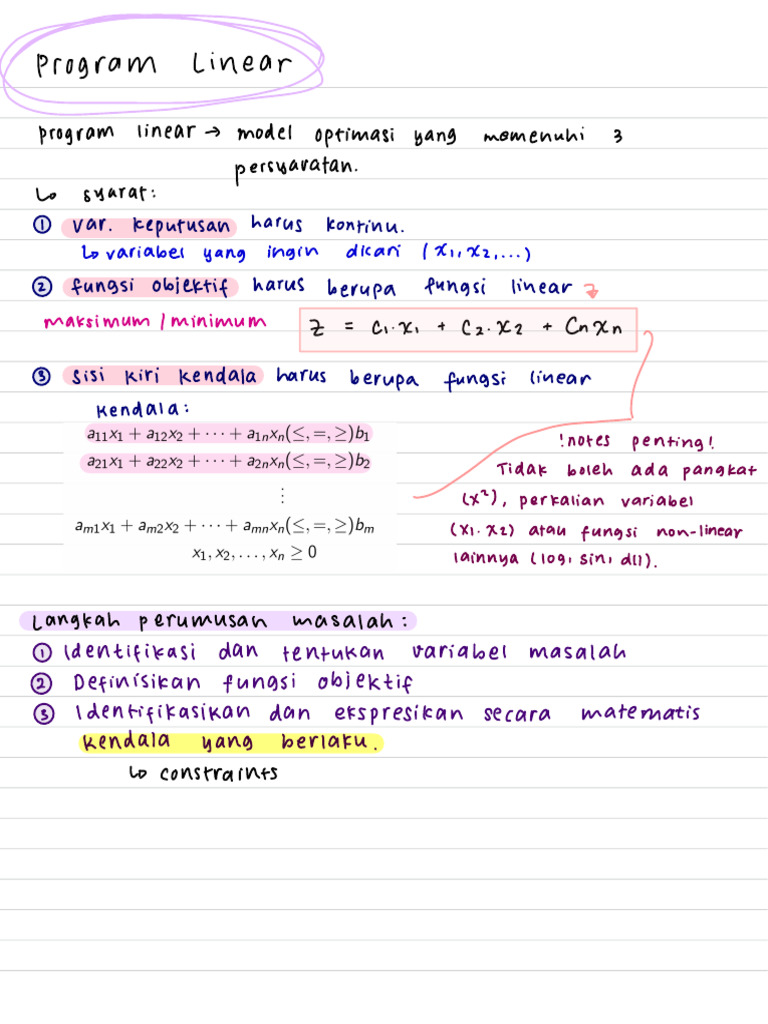 Program Linear
program linear → model optimasi yang memenuhi 3
persyaratan.
↳ syarat:
① var. keputusan harus kontinu.
↳ variabel yang ingin dicari (x₁, x₂, ...)
② fungsi objektif harus berupa fungsi linear
maksimum / minimum
z = c₁.x₁ + c₂.x₂ + Cnxn
③ sisi kiri kendala harus berupa fungsi linear
kendala:
a₁₁x₁ + a₁₂x₂ + ··· + a₁ₙxₙ(≤, =, ≥)b₁
a₂₁x₁ + a₂₂x₂ + ··· + a₂ₙxₙ(≤, =, ≥)b₂
⋮
aₘ₁x₁ + aₘ₂x₂ + ··· + aₘₙxₙ(≤, =, ≥)bₘ
x₁, x₂, ..., xₙ ≥ 0
!notes penting!
Tidak boleh ada pangkat
(x²), perkalian variabel
(x₁. x₂) atau fungsi non-linear
lainnya (log, sin, dll).
Langkah perumusan masalah:
① Identifikasi dan tentukan variabel masalah
② Definisikan fungsi objektif
③ Identifikasikan dan ekspresikan secara matematis
kendala yang berlaku.
↳ constraints